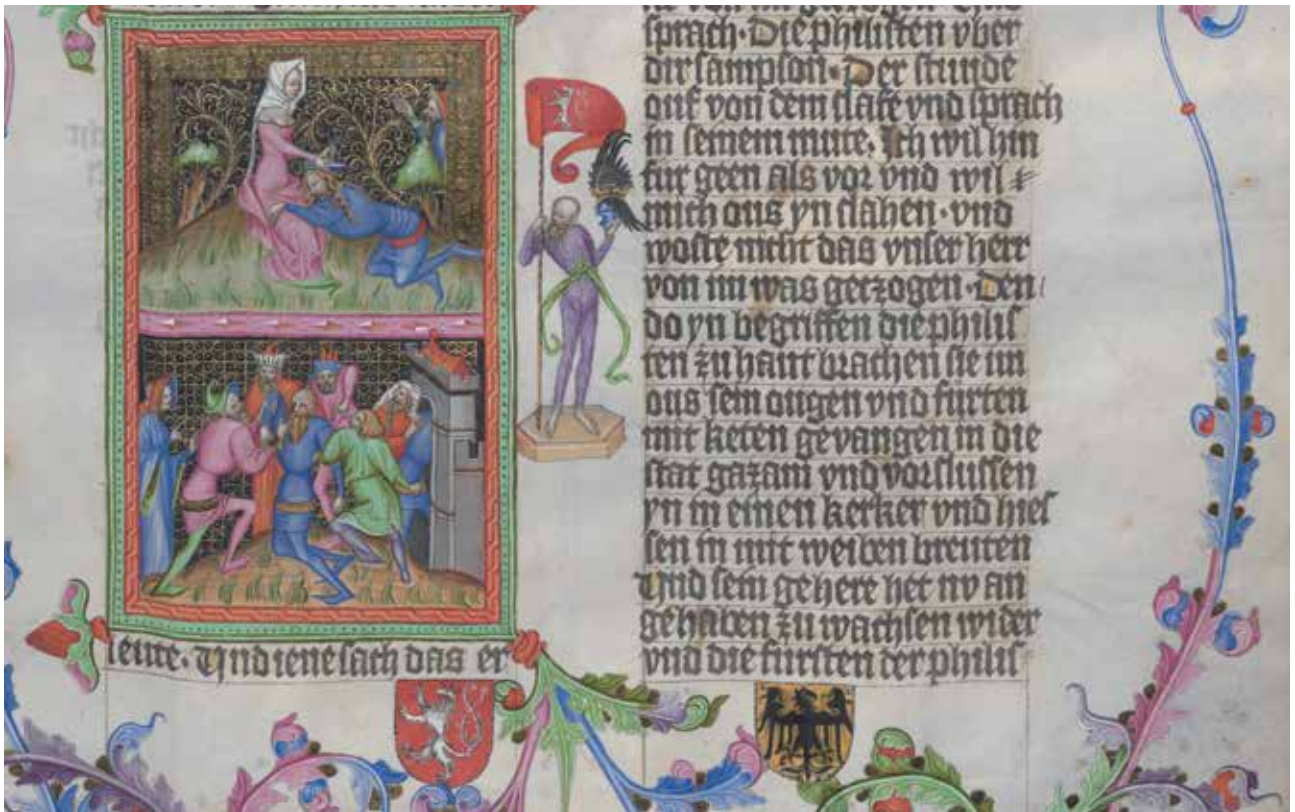 leute. Und iene sach das er
sprach. Die philisten vber
dir sampson. Der stunde
ouf von dem slafe vnd sprach
in seinem mute. Ich wil hin
fur geen als vor vnd wil
mich ous yn slahen. vnd
woste nicht das vnser herr
von im was getzogen. Den
do yn begriffen die philis
ten zu hant brachen sie im
ous sein ougen vnd furten
mit keten gevangen in die
stat gazam vnd vorslussen
yn in einen kerker vnd hies
sen in mit weiben breuten
Und sein gehere het nv an
gehaben zu wachsen wider
vnd die fursten der philis